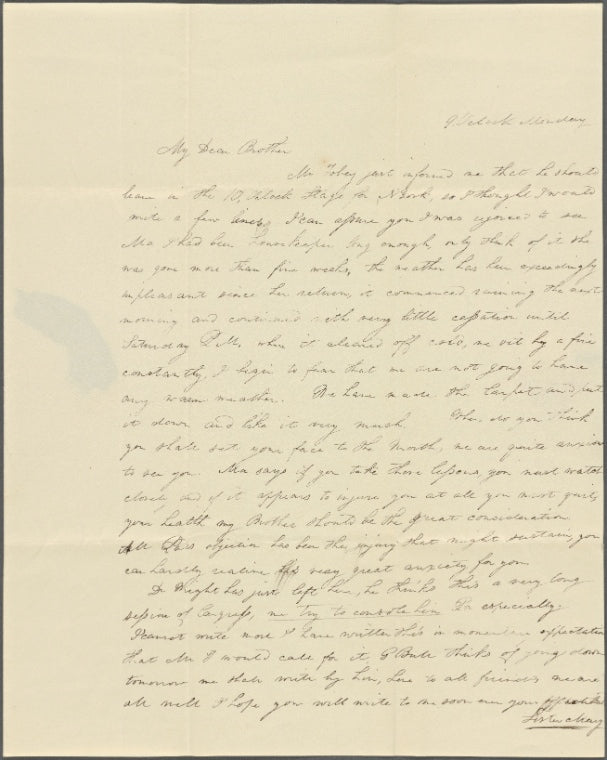 9 O'clock Monday
My Dear Brother
Mr Tobey just informed me that he should
leave in the 10, O'clock Stage for N York, so I thought I would
write a few lines, I can assure you I was rejoiced to see
Ma I had been Housekeeper long enough, only think of it she
was gone more than five weeks, the weather has been exceedingly
unpleasant since her return, it commenced raining the next
morning and continued with very little cessation until
Saturday P.M. when it cleared off cold, we sit by a fire
constantly, I begin to fear that we are not going to have
any warm weather. We have made the Carpet and put
it down and like it very much. When do you think
you shall set your face to the North, we are quite anxious
to see you. Ma says if you take those lessons, you must watch
closely and if it appears to injure you at all you must quit,
your health my Brother should be the great consideration
All Pa's objection has been the injury that might sustain, you
can hardly realize his very great anxiety for you
Dr Wright has just left here, he thinks this a very long
session of Congress, we try to console him Pa especially
I cannot write more I have written this in momentary expectation
that Mr T would call for it, G Bull thinks of going down
tomorrow we shall write by him, Love to all friends we are
all well I hope you will write to me soon ever your affectionate
Sister Mary